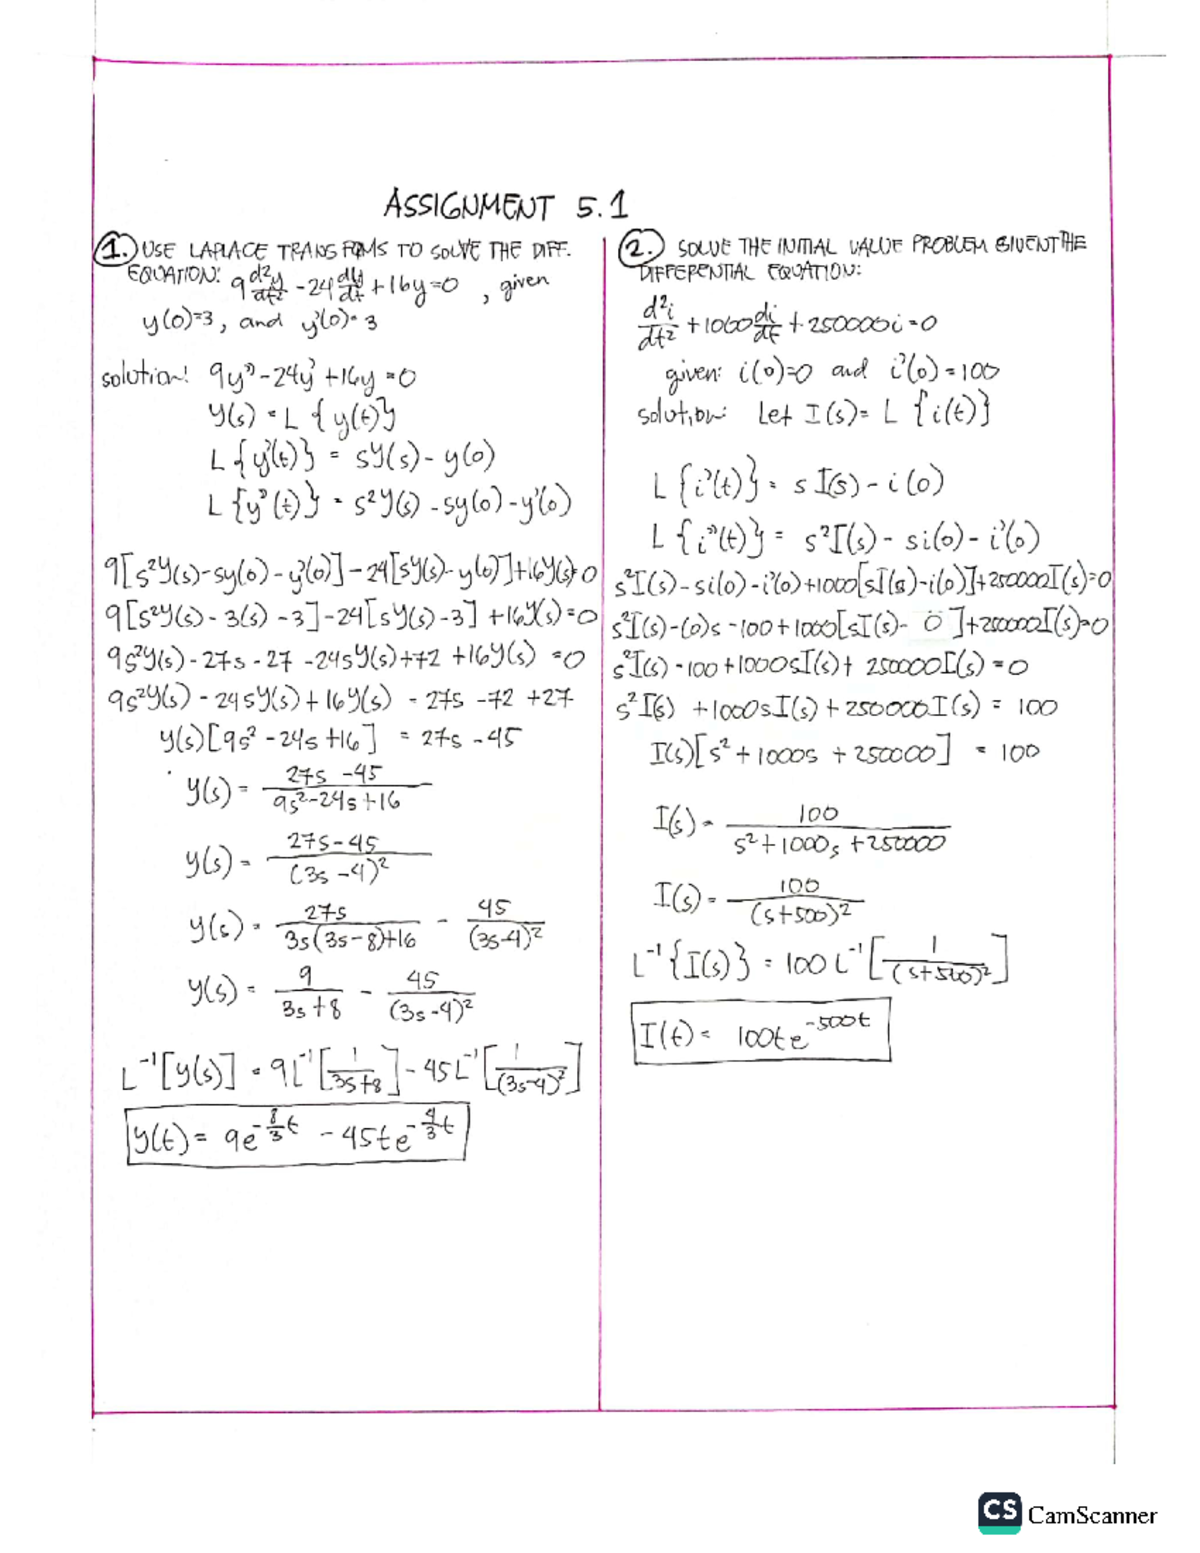 ASSIGNMENT 5.1
1. USE LAPLACE TRANSFORMS TO SOLVE THE DIFF.
EQUATION: 9 d²y/dt² - 24 dy/dt + 16y = 0 , given
y(0)=3, and y'(0)=3
solution: 9y'' - 24y' + 16y = 0
Y(s) = L {y(t)}
L {y'(t)} = sY(s) - y(0)
L {y''(t)} = s²Y(s) - sy(0) - y'(0)
9[s²Y(s)-sy(0)-y'(0)]-24[sY(s)-y(0)]+16Y(s)=0
9[s²Y(s)-3(s)-3]-24[sY(s)-3]+16Y(s)=0
9s²Y(s)-27s-27-24sY(s)+72+16Y(s)=0
9s²Y(s)-24sY(s)+16Y(s) = 27s-72+27
Y(s)[9s²-24s+16] = 27s-45
Y(s) = 27s-45 / 9s²-24s+16
Y(s) = 27s-45 / (3s-4)²
Y(s) = 27s / 3s(3s-8)+16 - 45 / (3s-4)²
Y(s) = 9 / 3s+8 - 45 / (3s-4)²
L⁻¹[Y(s)] = 9L⁻¹[1 / 3s+8] - 45L⁻¹[1 / (3s-4)²]
y(t) = 9e^-8/3t - 45te^-4/3t
2. SOLVE THE INITIAL VALUE PROBLEM GIVEN THE
DIFFERENTIAL EQUATION:
d²i/dt² + 1000 di/dt + 250000i = 0
given: i(0)=0 and i'(0)=100
solution: Let I(s) = L {i(t)}
L {i'(t)} = sI(s) - i(0)
L {i''(t)} = s²I(s) - si(0) - i'(0)
s²I(s)-si(0)-i'(0)+1000[sI(s)-i(0)]+250000I(s)=0
s²I(s)-(0)s-100+1000[sI(s)-0]+250000I(s)=0
s²I(s)-100+1000sI(s)+250000I(s)=0
s²I(s)+1000sI(s)+250000I(s) = 100
I(s)[s²+1000s+250000] = 100
I(s) = 100 / s²+1000s+250000
I(s) = 100 / (s+500)²
L⁻¹{I(s)} = 100L⁻¹[1 / (s+500)²]
I(t) = 100te^-500t
CS CamScanner